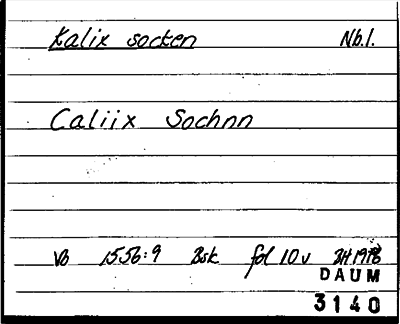 Kalix socken Nb.l.
Caliix Sochnn
Vb 1556:9 Bsk fol 10v BH 1978
DAUM
3140